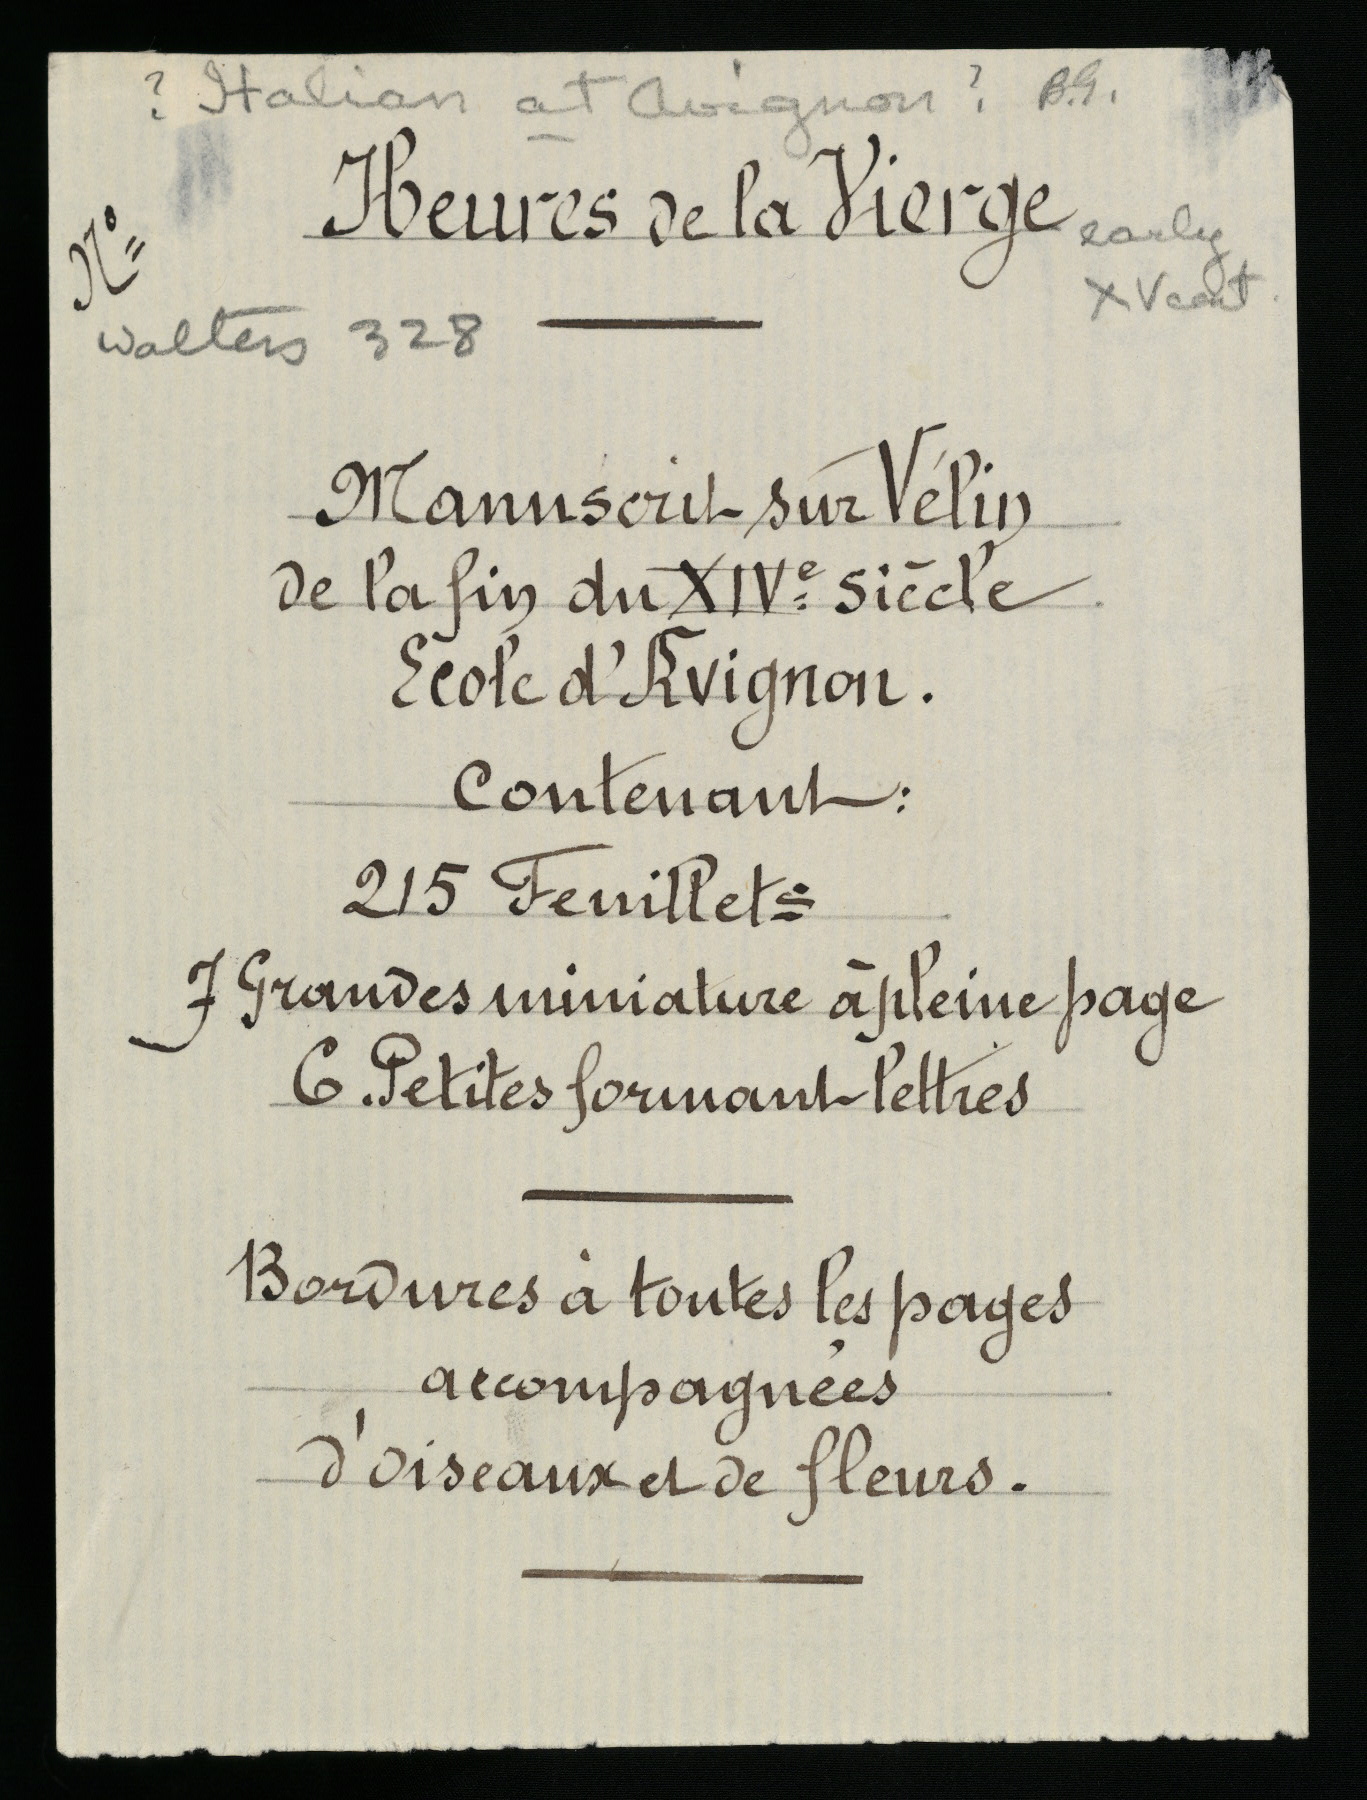 ? Italian at Avignon ? B.G.
Heures de la Vierge
early
XV cent.
Nº
Walters 328
Manuscrit sur Vélin
de la fin du XIVe siècle
Ecole d'Avignon.
Contenant:
215 Feuillets
7 Grandes miniature à pleine page
6. Petites formant lettres
Bordures à toutes les pages
accompagnées
d'oiseaux et de fleurs.